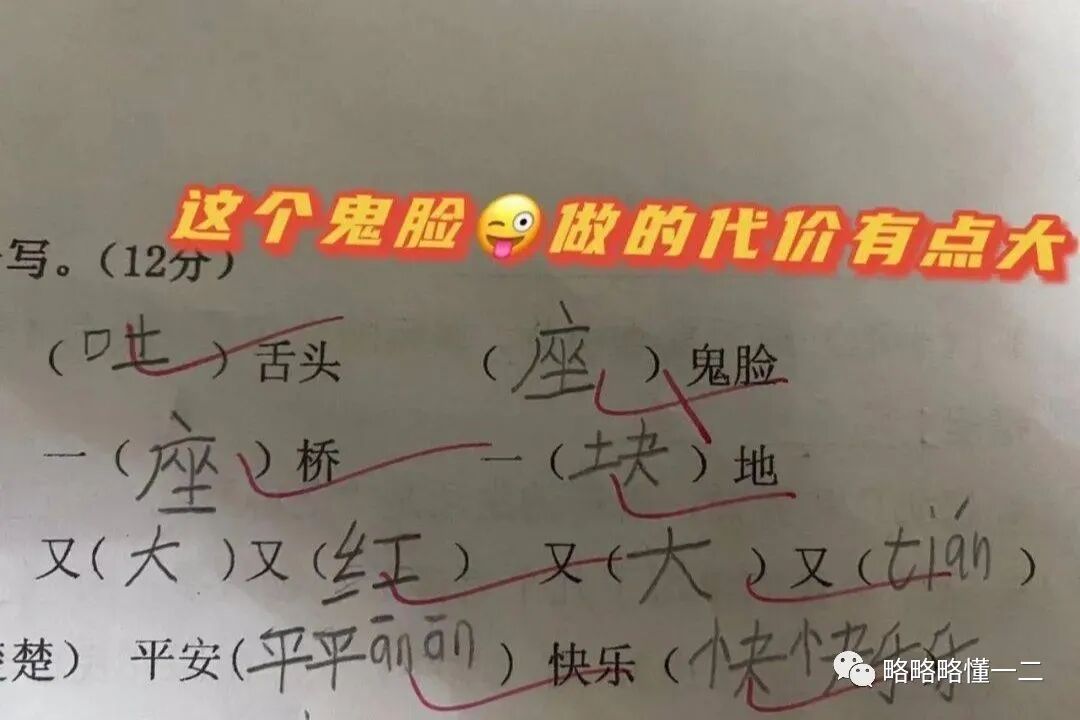 这个鬼脸😜做的代价有点大
写。(12分)
(吐)舌头 (座)鬼脸
一(座)桥 一(块)地
又(大)又(红) 又(大)又(tián)
楚) 平安(平平ānān) 快乐(快快乐乐
略略略懂一二